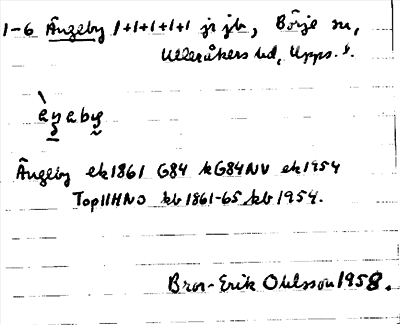 1-6 Ängeby 1+1+1+1+1 jr jb, Börje sn,
Ulleråkers hd, Upps. l.
Ängeby ek1861 G84 kG84NV ek1954
Top11HNO kb 1861-65 kb 1954.
Bror-Erik Ohlsson 1958.